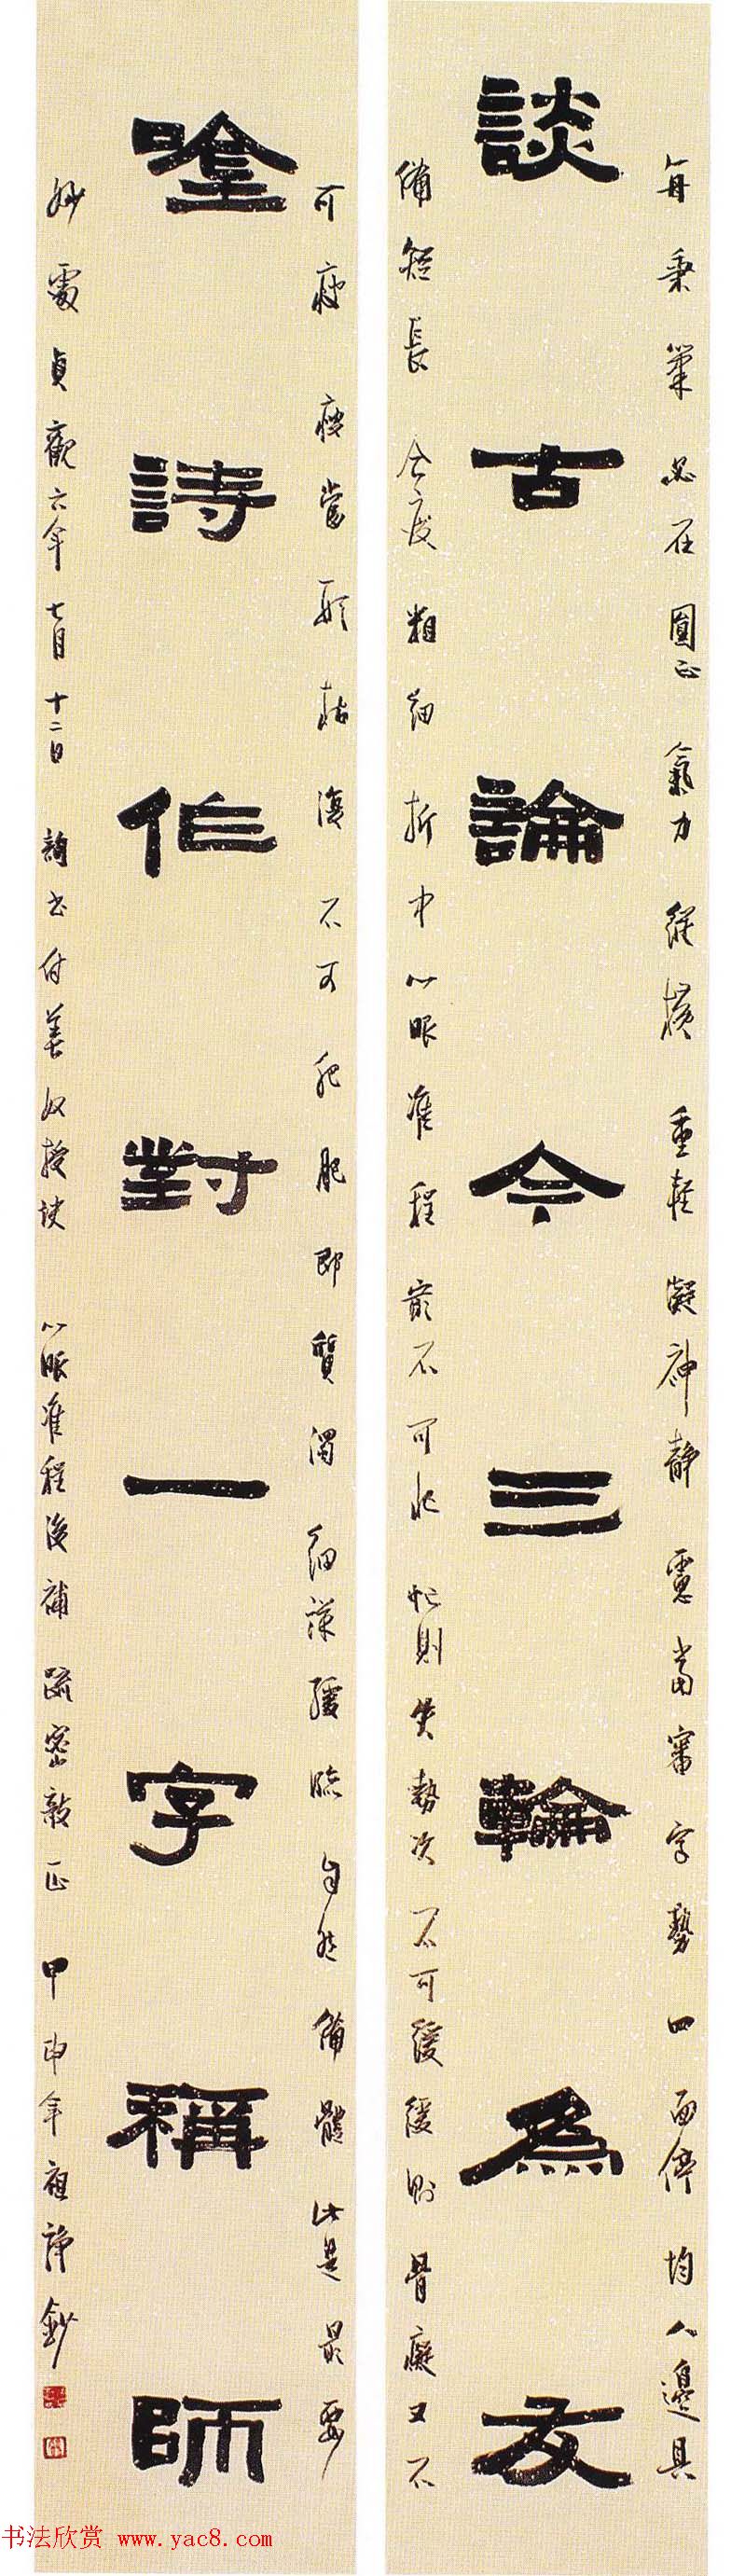 每秉筆必在圓正氣力縱橫重輕凝神靜慮當審字勢四面停均八邊具
談古論今三輪為友
備短長合度粗細折中心眼准程最不可忙忙則失勢次不可緩緩則骨癡又不
可瘦瘦當形枯復不可肥肥即質濁細詳緩臨自然備體此是最要
唫詩作對一字稱師
妙處貞觀六年七月十二日詢書付善奴授訣心眼准程後補疏密欹正甲申年諍鈔
书法欣赏 www.yac8.com